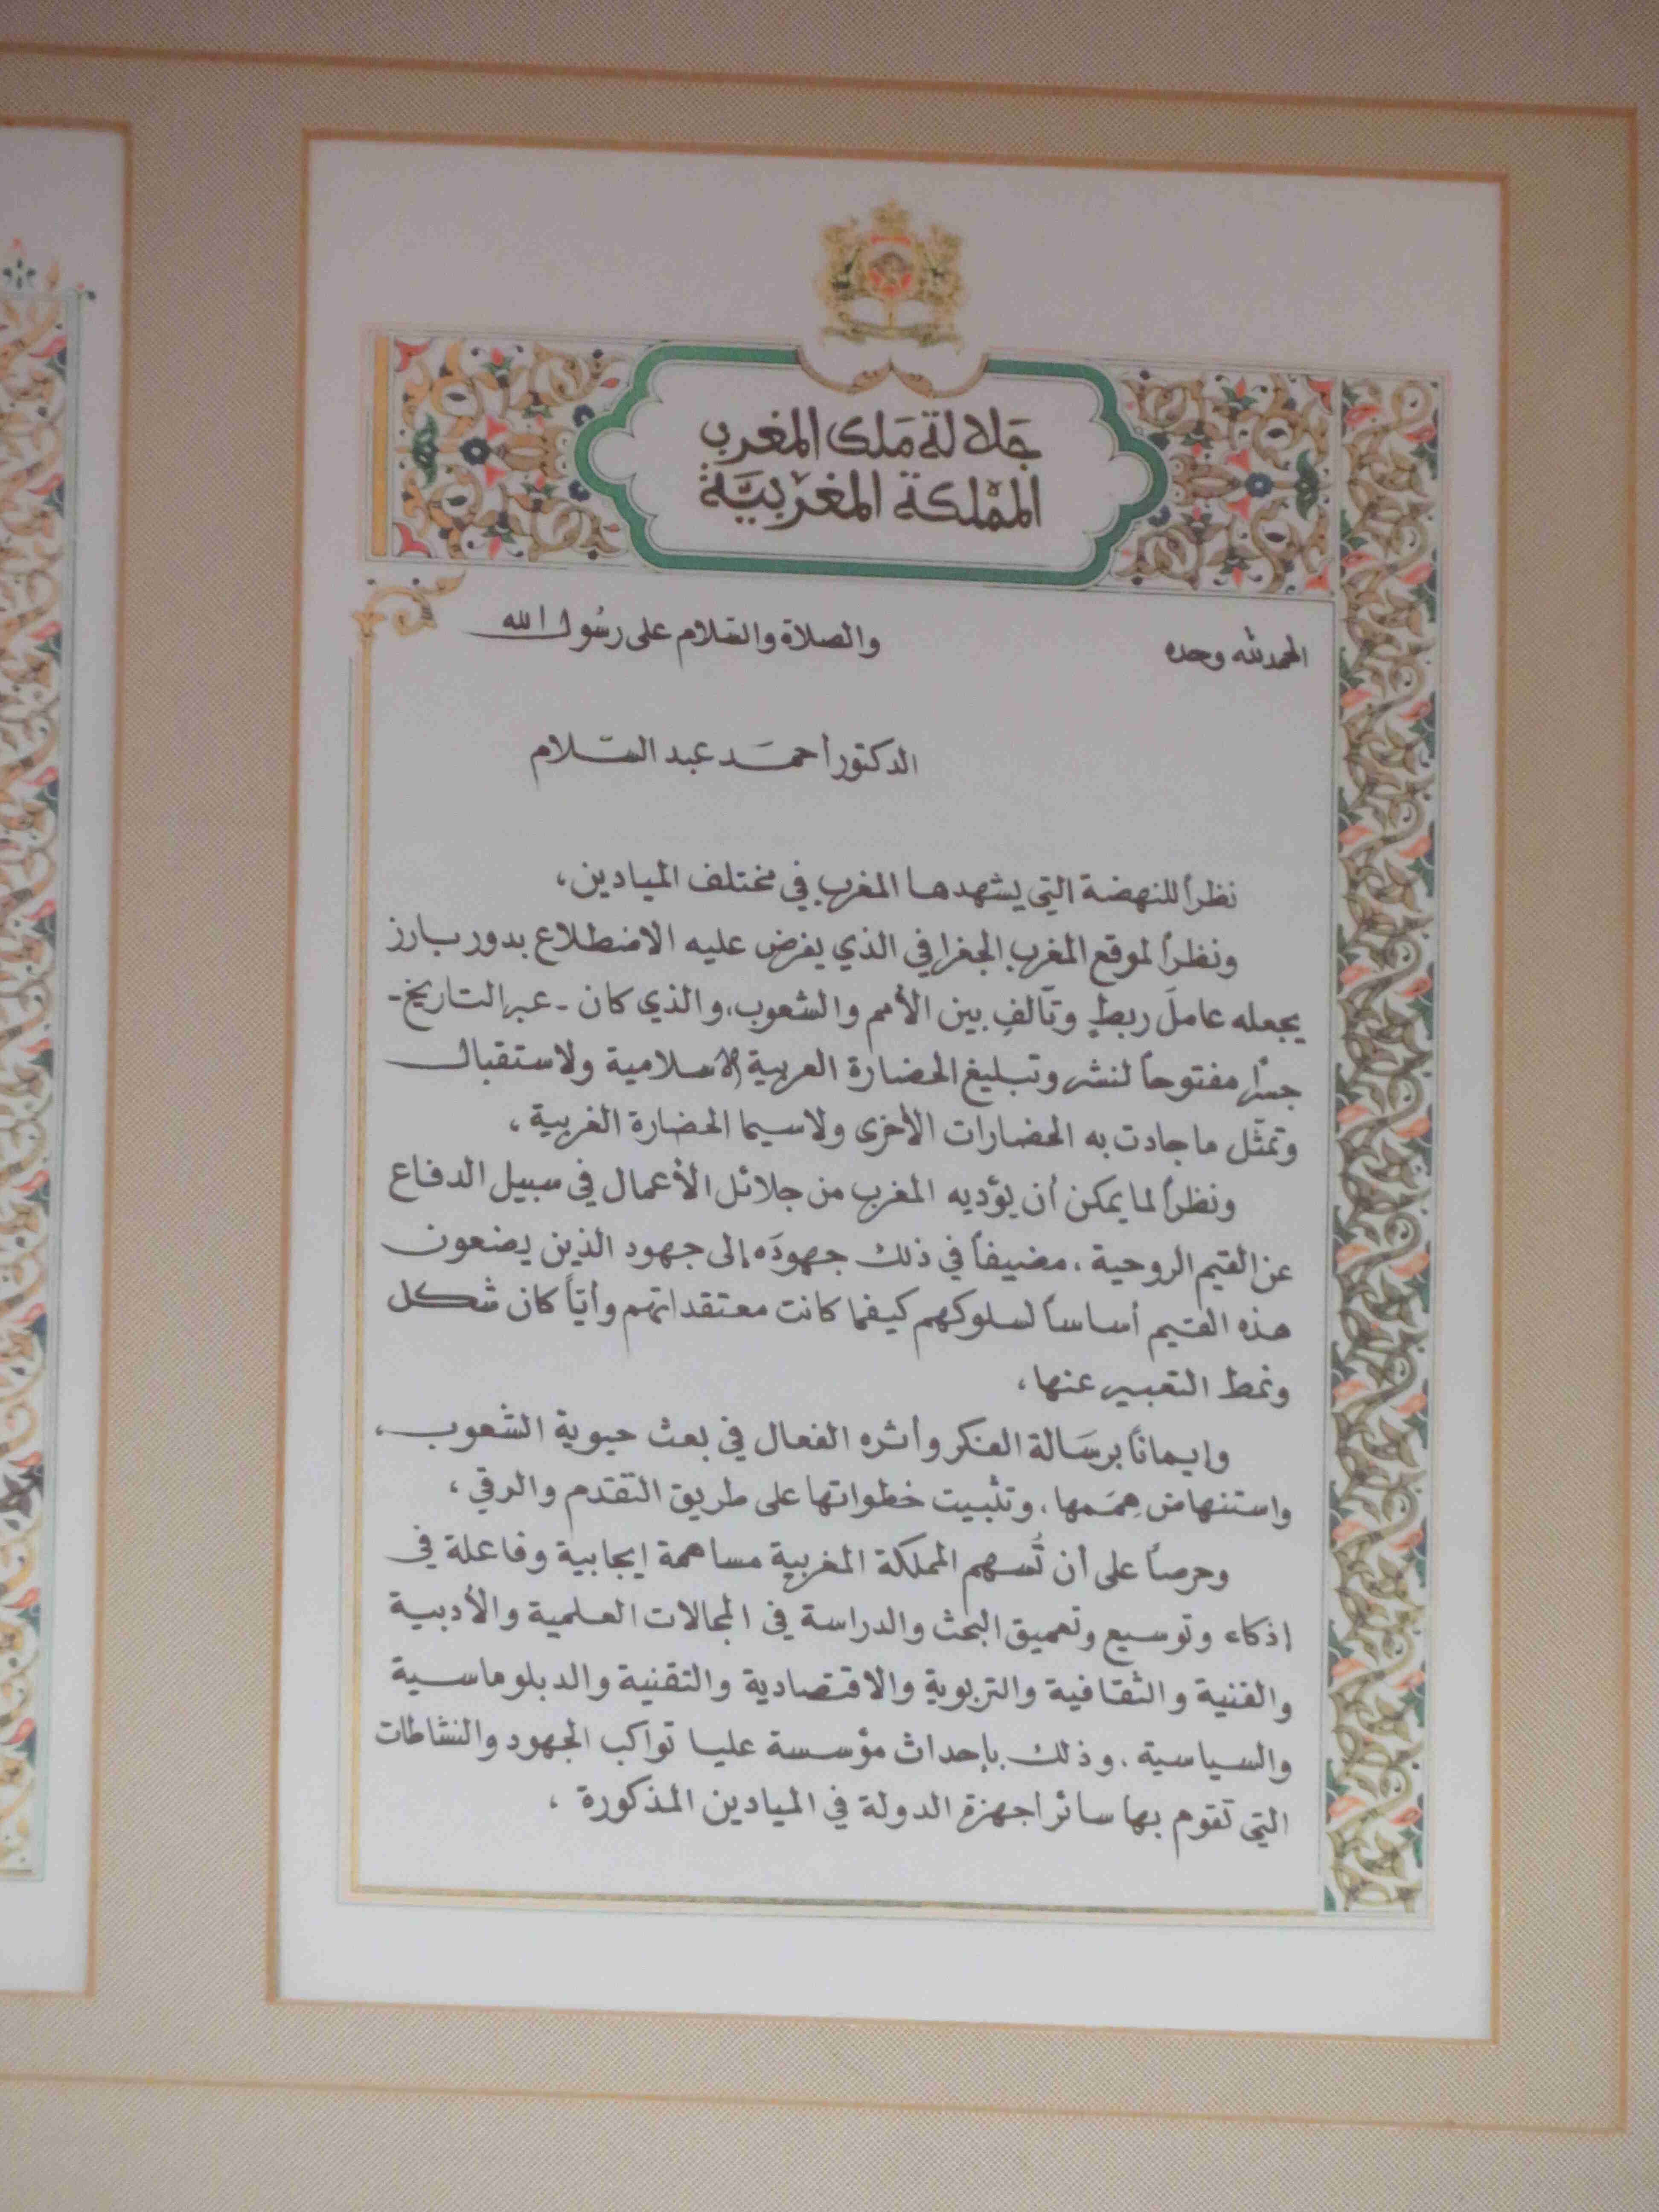 جَلالة مَلك المغرب
المَمْلكة المغرْبيَّة
الحمد لله وحده والصلاة والسّلام على رسُول الله
الدكتور أحمَد عبد السّلام
نظراً للنهضة التي يشهدها المغرب في مختلف الميادين،
ونظراً لموقع المغرب الجغرافي الذي يفرض عليه الاضطلاع بدور بارز
يجعله عاملَ ربطٍ وتآلفٍ بين الأمم والشعوب، والذي كان - عبر التاريخ -
جسراً مفتوحاً لنشر وتبليغ الحضارة العربية الإسلامية ولاستقبال
وتمثّل ما جادت به الحضارات الأخرى ولاسيما الحضارة الغربية،
ونظراً لما يمكن أن يؤديه المغرب من جلائل الأعمال في سبيل الدفاع
عن القيم الروحية، مضيفاً في ذلك جهودَه إلى جهود الذين يضعون
هذه القيم أساساً لسلوكهم كيفما كانت معتقداتهم وأيّاً كان شكل
ونمط التعبير عنها،
وإيماناً برسَالة الفكر وأثره الفعال في بعث حيوية الشعوب،
واستنهاض هِمَمها، وتثبيت خطواتها على طريق التقدم والرقي،
وحرصاً على أن تُسهم المملكة المغربية مساهمة إيجابية وفاعلة في
إذكاء وتوسيع وتعميق البحث والدراسة في المجالات العلمية والأدبية
والفنية والثقافية والتربوية والاقتصادية والتقنية والدبلوماسية
والسياسية، وذلك بإحداث مؤسسة عليا تواكب الجهود والنشاطات
التي تقوم بها سائر أجهزة الدولة في الميادين المذكورة،